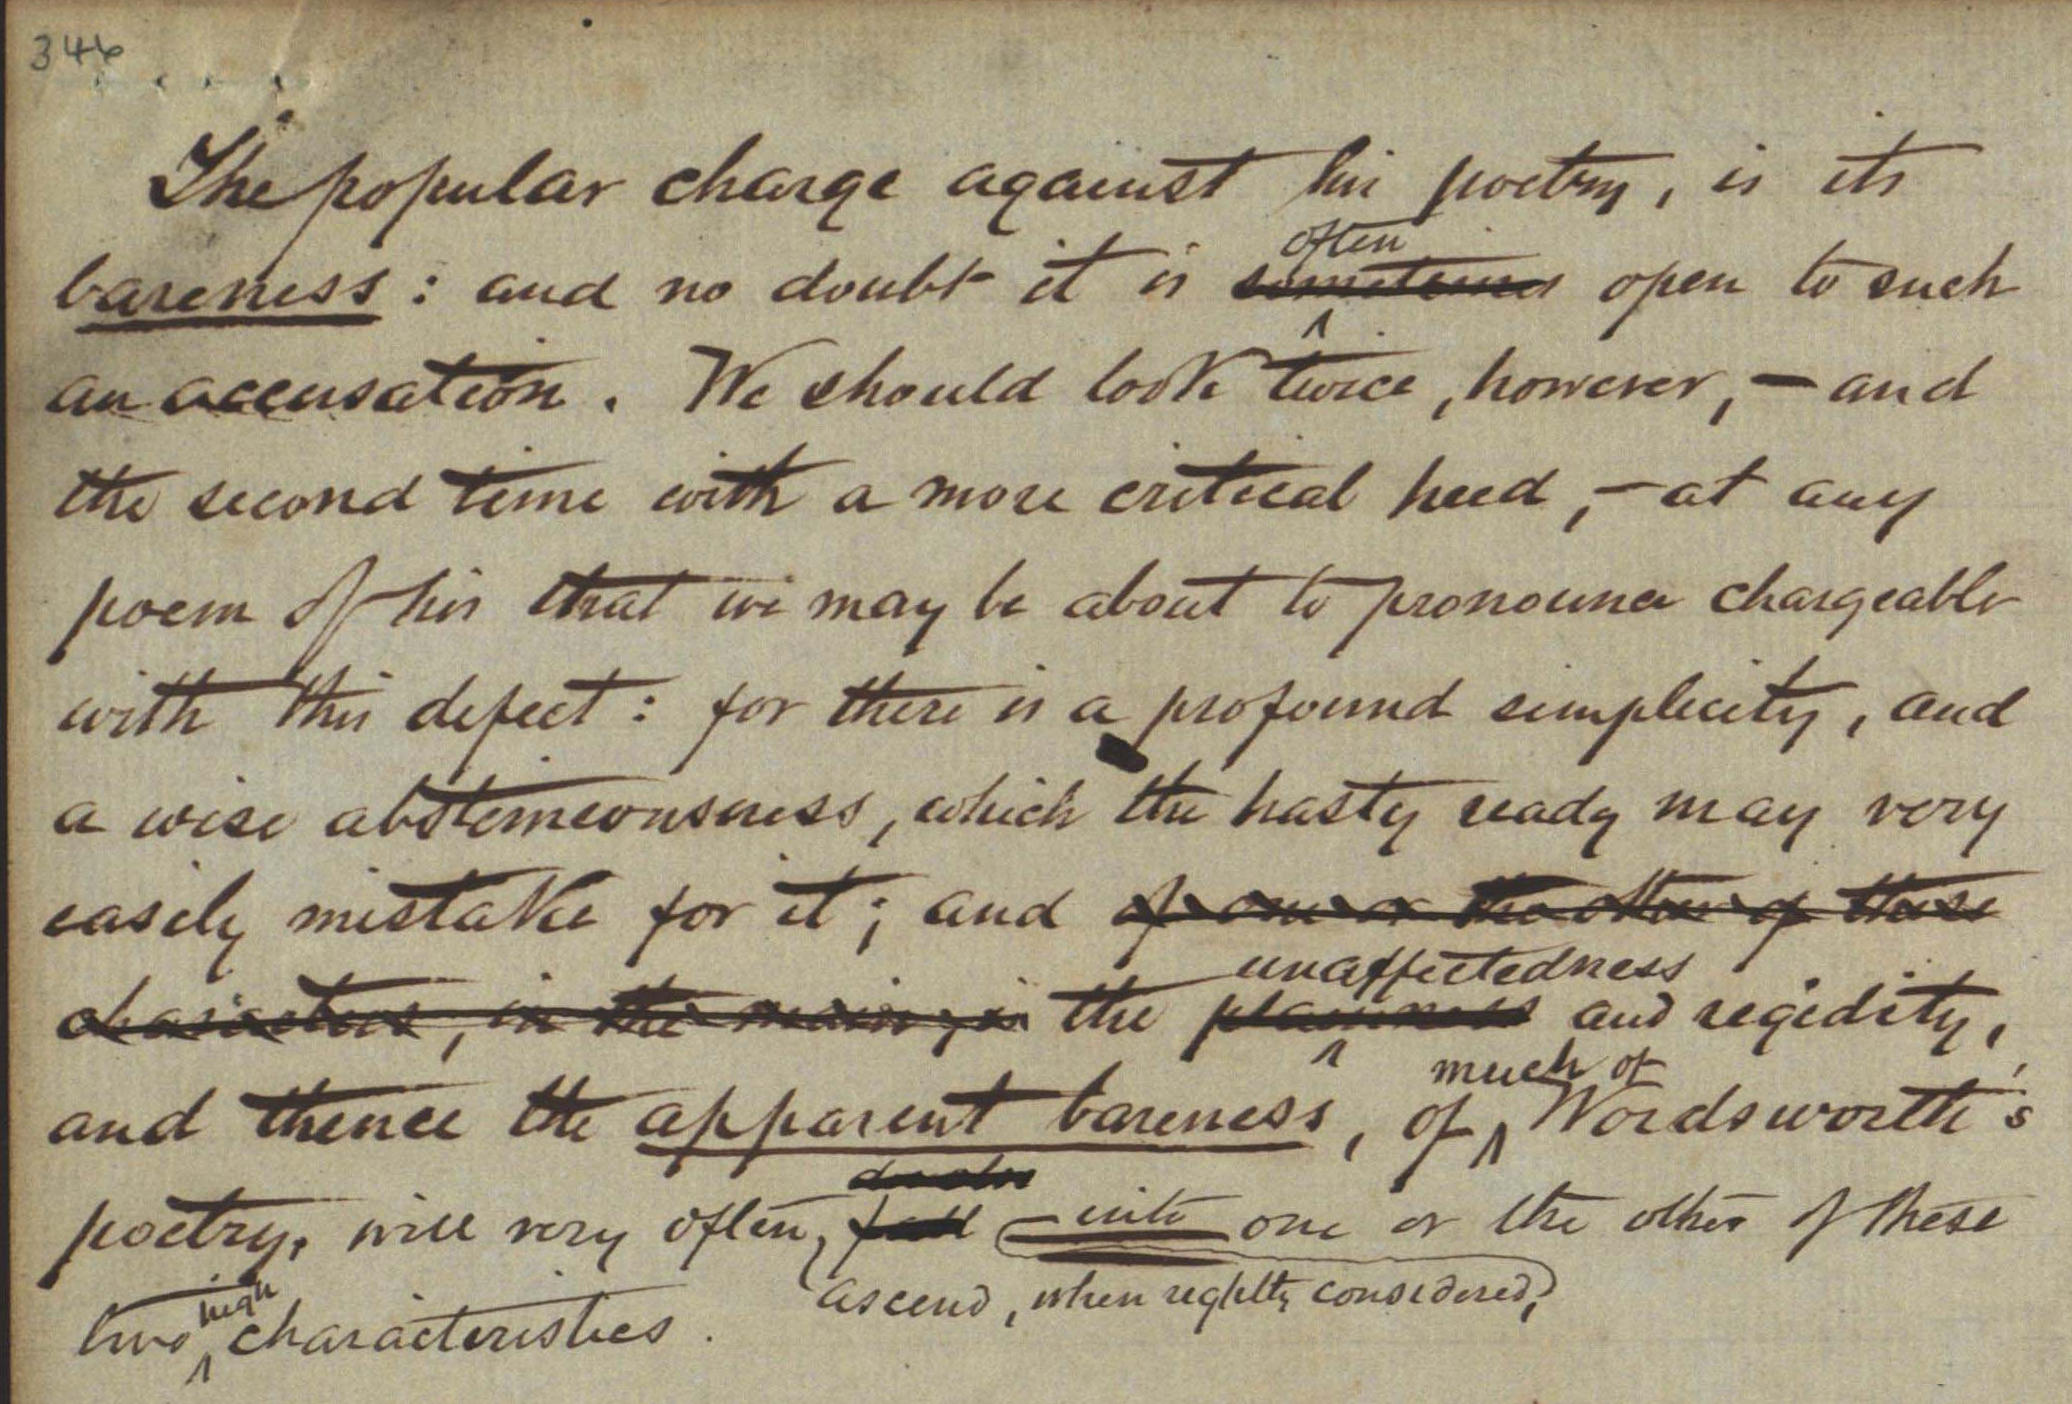 346
The popular charge against his poetry, is its
often
bareness : and no doubt it is sometimes open to such
an accusation. We should look twice, however, – and
the second time with a more critical heed, – at any
poem of his that we may be about to pronounce chargeable
with this defect : for there is a profound simplicity, and
a wise abstemeousness, which the hasty ready may very
easily mistake for it ; and of one or the other of these
unaffectedness
characters, in the main, is the plainness and regidity,
much of
and thence the apparent bareness, of Wordsworth's
poetry, will very often, fall into one or the other of these
ascend, when reghtly considered,
high
two characteristics.